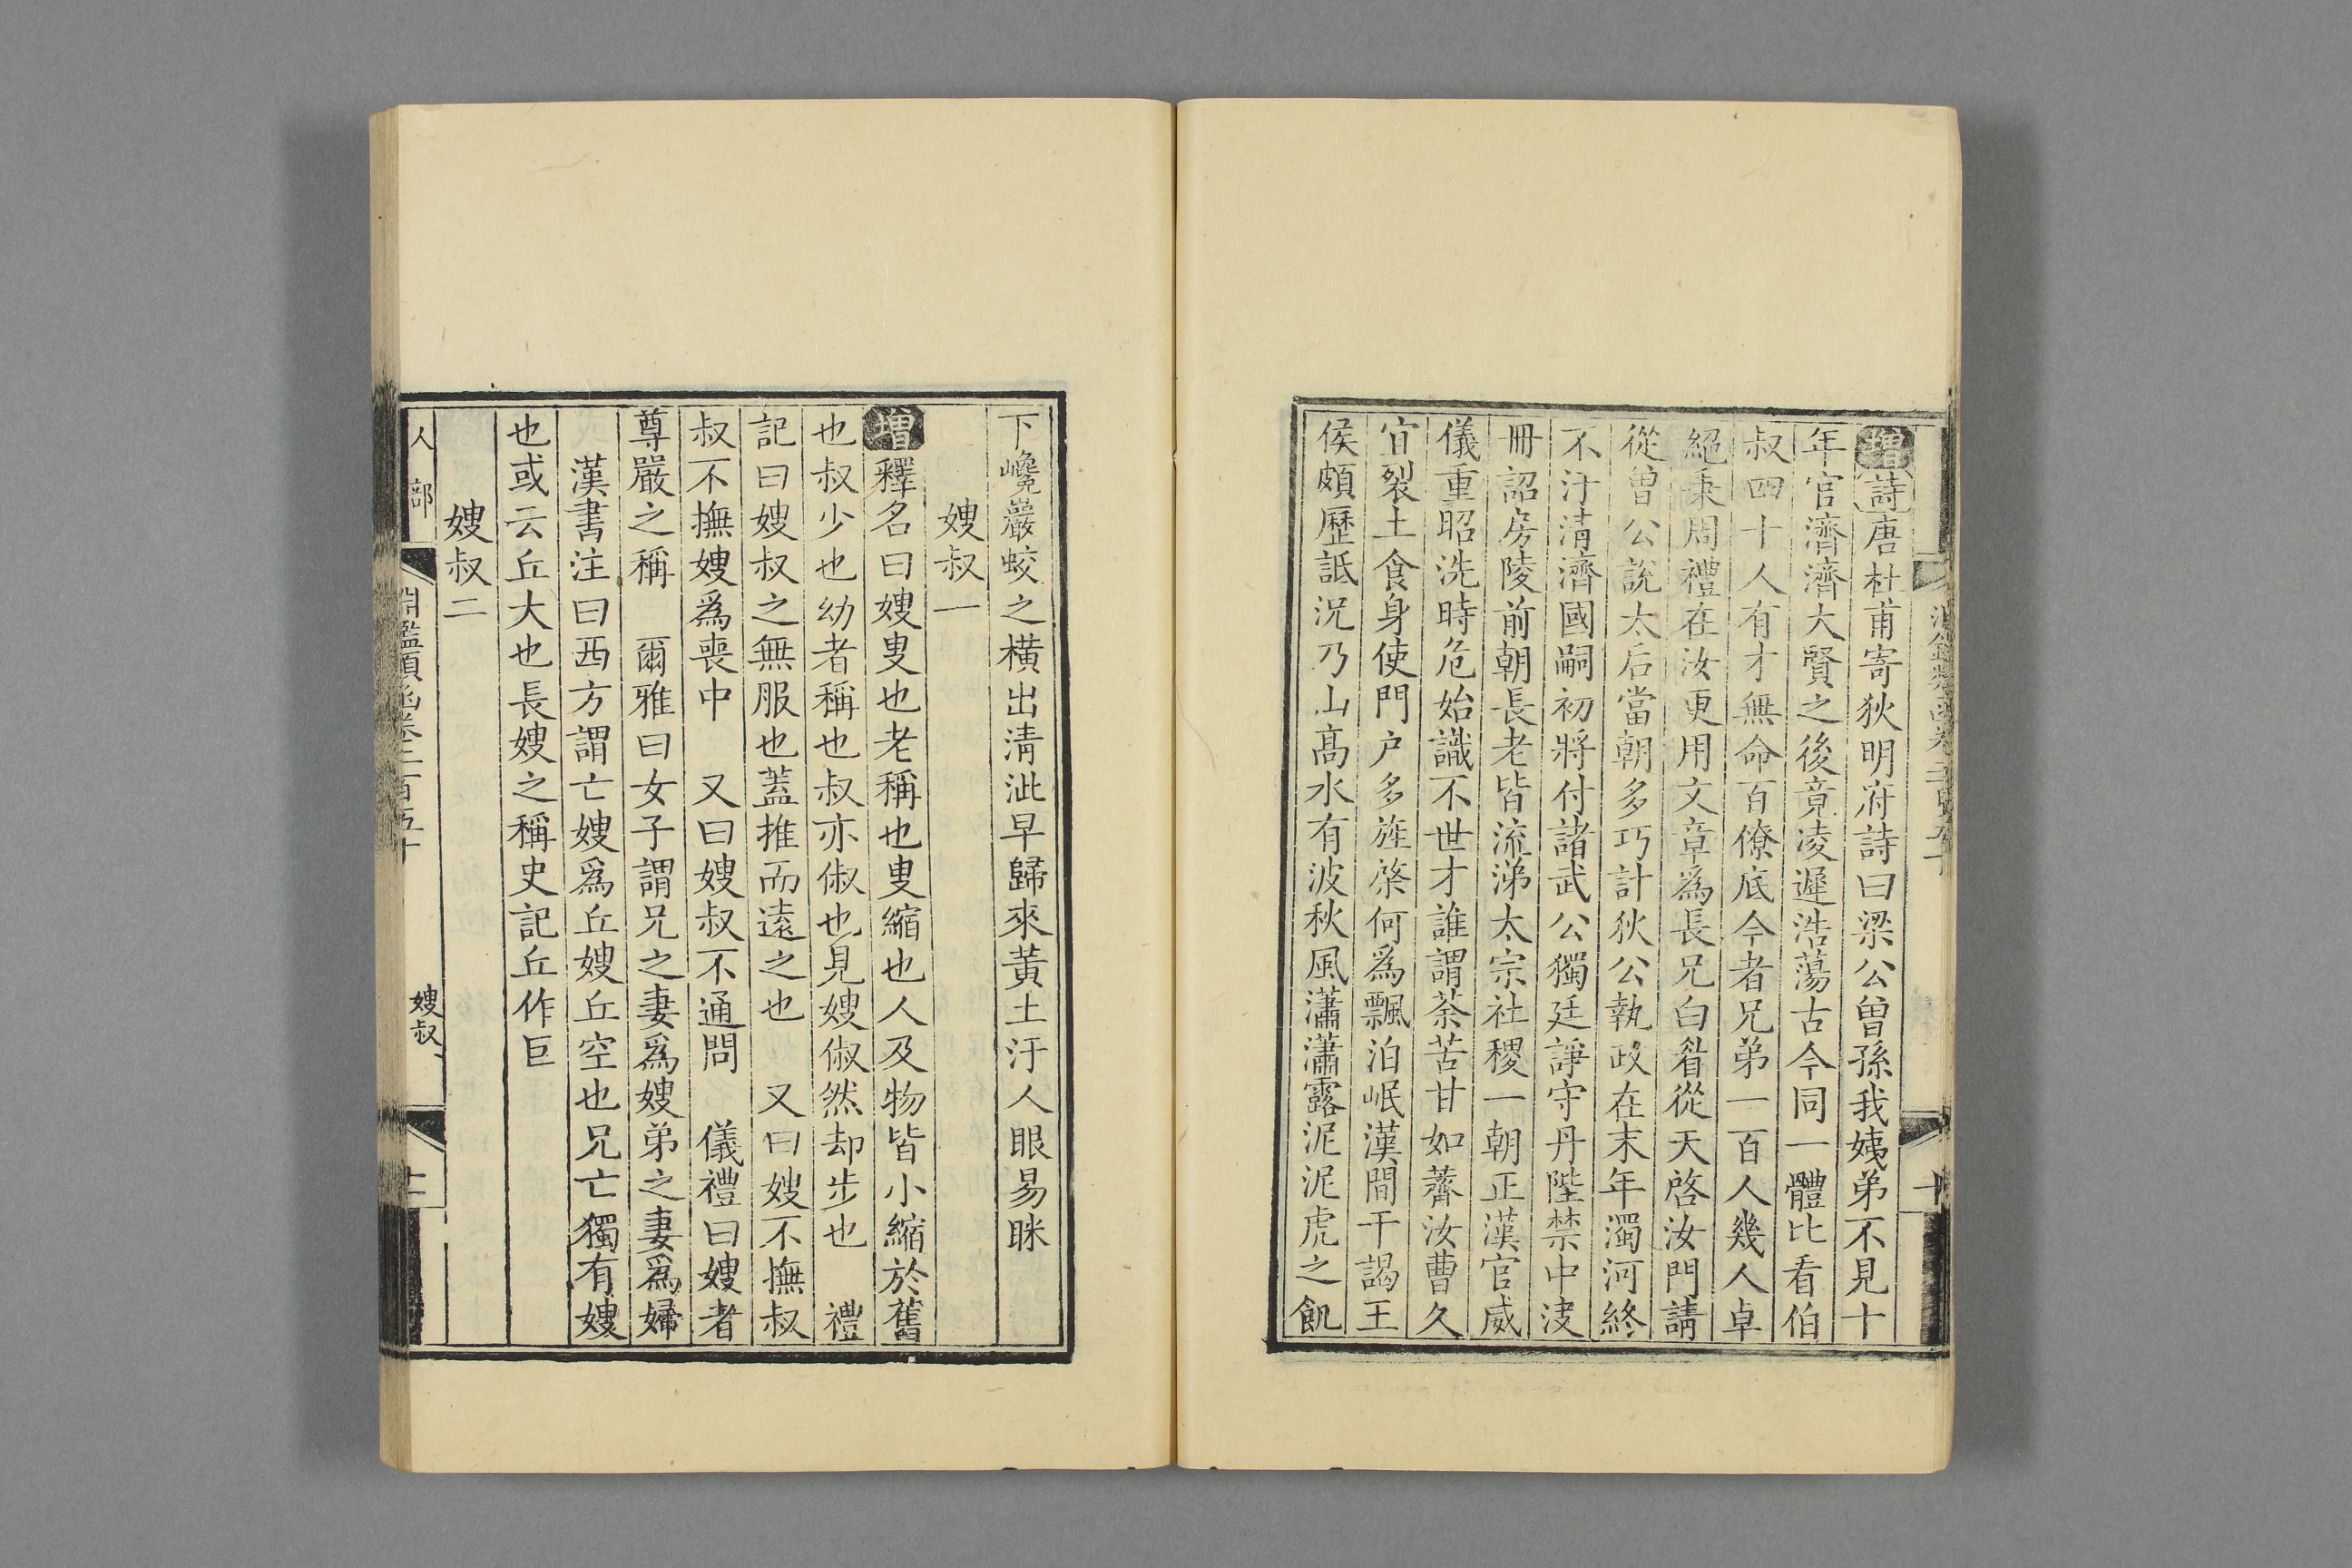 增詩唐杜甫寄狄明府詩曰梁公曾孫我姨弟不見十
年官濟濟大賢之後竟凌遲浩蕩古今同一體比看伯
叔四十人有才無命百僚底今者兄弟一百人幾人卓
絕秉周禮在汝更用文章爲長兄白眉從天啓汝門請
從曾公說太后當朝多巧計狄公執政在末年濁河終
不汙清濟國嗣初將付諸武公獨廷諍守丹陛禁中決
冊詔房陵前朝長老皆流涕太宗社稷一朝正漢官威
儀重昭洗時危始識不世才誰謂荼苦甘如薺汝曹久
宜裂土食身使門戶多旌棨何爲飄泊岷漢間干謁王
侯頗歷詆況乃山高水有波秋風瀟瀟露泥泥虎之飢
下巉巖蛟之橫出清泚早歸來黃土汙人眼易眯
嫂叔一
增釋名曰嫂叟也老稱也叟縮也人及物皆小縮於舊
也叔少也幼者稱也叔亦俶也見嫂俶然却步也　禮
記曰嫂叔之無服也蓋推而遠之也　又曰嫂不撫叔
叔不撫嫂爲喪中　又曰嫂叔不通問　儀禮曰嫂者
尊嚴之稱　爾雅曰女子謂兄之妻爲嫂弟之妻爲婦
漢書注曰西方謂亡嫂爲丘嫂丘空也兄亡獨有嫂
也或云丘大也長嫂之稱史記丘作巨
嫂叔二
人部
淵鑑類函卷二百五十
嫂叔